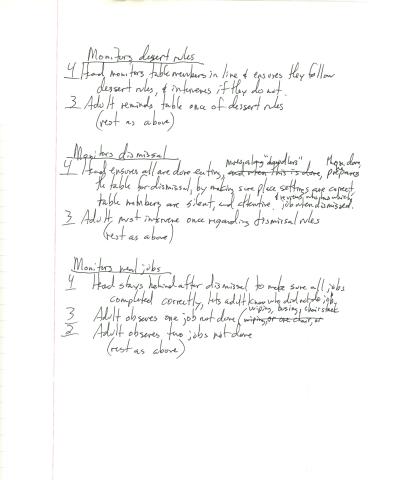 Monitors desert rules
4 Head monitors table members in line & ensures they follow
dessert rules, & intervenes if they do not.
3 Adult reminds table once of dessert rules
(rest as above)
Monitors dismissal
4 Head ensures all are done eating, and when this is done, prepares
the table for dismissal, by making sure place settings are correct,
table members are silent, and attentive. job when dismissed.
3 Adult must intervene once regarding dismissal rules
(rest as above)
Monitors meal jobs
4 Head stays behind after dismissal to make sure all jobs
completed correctly, lets adult know who did not do job.
3 Adult observes one job not done (wiping, busing, chair stack
wiping, or one chair, or
2 Adult observes two jobs not done
(rest as above)